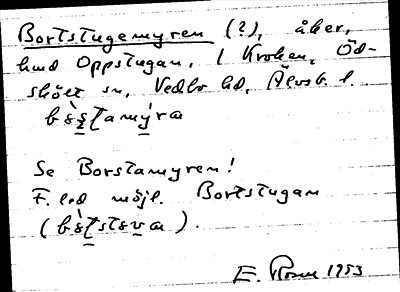 Bortstugemyren (?), åker,
hmd Oppstugan, l Kroken, Öd-
skölt sn, Vedbo hd, Älvsb. l.
Se Borstamyren!
F. led möjl. Bortstugan
E. Rosen 1953